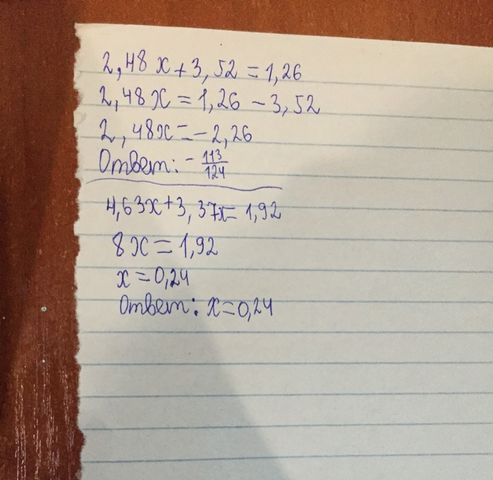 2,48x+3,52=1,26
2,48x=1,26-3,52
2,48x=-2,26
Ответ: -113/124
4,63x+3,37x=1,92
8x=1,92
x=0,24
Ответ: x=0,24